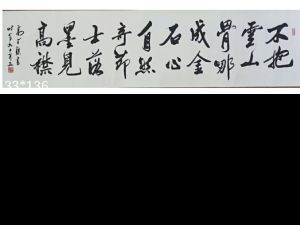 不抱
灵山
骨哪
成金
石心
自然
奇节
士落
墨见
高襟
33*136